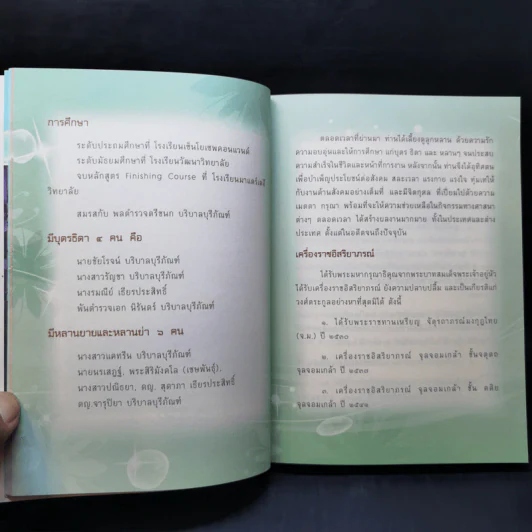 การศึกษา
ระดับประถมศึกษาที่ โรงเรียนเซ็นโยเซฟคอนแวนต์
ระดับมัธยมศึกษาที่ โรงเรียนวัฒนาวิทยาลัย
จบหลักสูตร Finishing Course ที่ โรงเรียนมาแตร์เดอี
วิทยาลัย
สมรสกับ พลตำรวจตรีชนก บริบาลบุรีภัณฑ์
มีบุตรธิดา ๔ คน คือ
นายชัยโรจน์ บริบาลบุรีภัณฑ์
นางสาวรัญชา บริบาลบุรีภัณฑ์
นางรมณีย์ เธียรประสิทธิ์
พันตำรวจเอก นิรันดร์ บริบาลบุรีภัณฑ์
มีหลานยายและหลานย่า ๖ คน
นางสาวแคทรีน บริบาลบุรีภัณฑ์
นายนรเศฎฐ์, พระสิริมังคโล (เชษพันธุ์),
นางสาวปณิธยา, ดญ. สุดาถา เธียรประสิทธิ์
ดญ.จารุปิยา บริบาลบุรีภัณฑ์
ตลอดเวลาที่ผ่านมา ท่านได้เลี้ยงดูลูกหลาน ด้วยความรัก
ความอบอุ่นและให้การศึกษา แก่บุตร ธิดา และ หลานๆ จนประสบ
ความสำเร็จในชีวิตและหน้าที่การงาน หลังจากนั้น ท่านจึงได้อุทิศตน
เพื่อบำเพ็ญประโยชน์ต่อสังคม สละเวลา แรงกาย แรงใจ ทุ่มเทให้
กับงานด้านสังคมอย่างเต็มที่ และมีจิตกุศล ที่เปี่ยมไปด้วยความ
เมตตา กรุณา พร้อมที่จะให้ความช่วยเหลือในกิจกรรมทางศาสนา
ต่างๆ ตลอดเวลา ได้สร้างผลงานมากมาย ทั้งในประเทศและต่าง
ประเทศ ตั้งแต่ในอดีตจนถึงปัจจุบัน
เครื่องราชอิสริยาภรณ์
ได้รับพระมหากรุณาธิคุณจากพระบาทสมเด็จพระเจ้าอยู่หัว
ได้รับเครื่องราชอิสริยาภรณ์ ยังความปลาบปลื้ม และเป็นเกียรติแก่
วงศ์ตระกูลอย่างหาที่สุดมิได้ ดังนี้
๑. ได้รับพระราชทานเหรียญ จัตุรถาภรณ์มงกุฎไทย
(จ.ม.) ปี ๒๕๓๐
๒. เครื่องราชอิสริยาภรณ์ จุลจอมเกล้า ชั้นจตุตถ
จุลจอมเกล้า ปี ๒๕๓๗
๓. เครื่องราชอิสริยาภรณ์ จุลจอมเกล้า ชั้น ตติย
จุลจอมเกล้า ปี